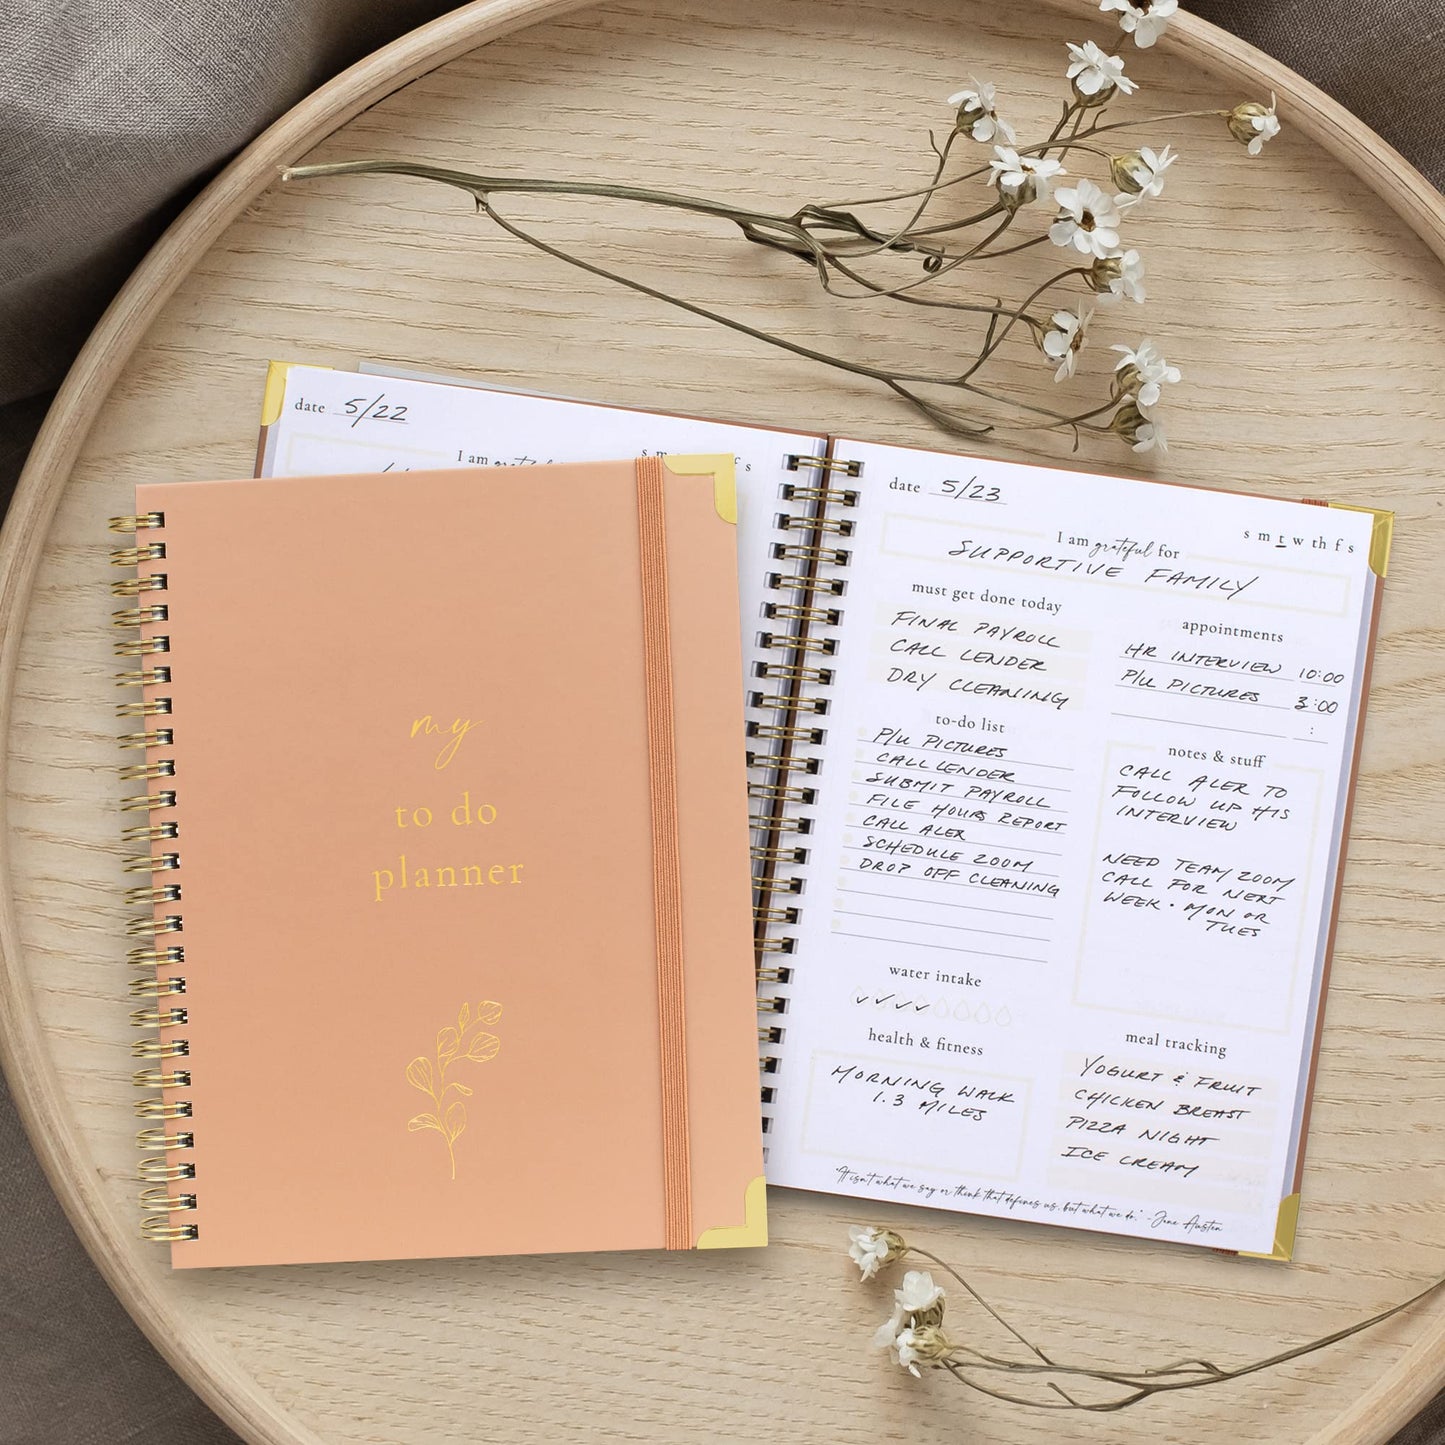 my
to do
planner
date 5/22
I am grateful
s m
f s
date 5/23
s m t w th f s
I am grateful for
SUPPORTIVE FAMILY
must get done today
FINAL PAYROLL
CALL LENDER
DRY CLEANING
appointments
HR INTERVIEW 10:00
P/U PICTURES 3:00
:
to-do list
P/U PICTURES
CALL LENDER
SUBMIT PAYROLL
FILE HOURS REPORT
CALL ALEX
SCHEDULE ZOOM
DROP OFF CLEANING
notes & stuff
CALL ALEX TO
FOLLOW UP HIS
INTERVIEW
NEED TEAM ZOOM
CALL FOR NEXT
WEEK • MON OR
TUES
water intake
health & fitness
MORNING WALK
1.3 MILES
meal tracking
YOGURT & FRUIT
CHICKEN BREAST
PIZZA NIGHT
ICE CREAM
"It isn't what we say or think that defines us, but what we do." - Jane Austen